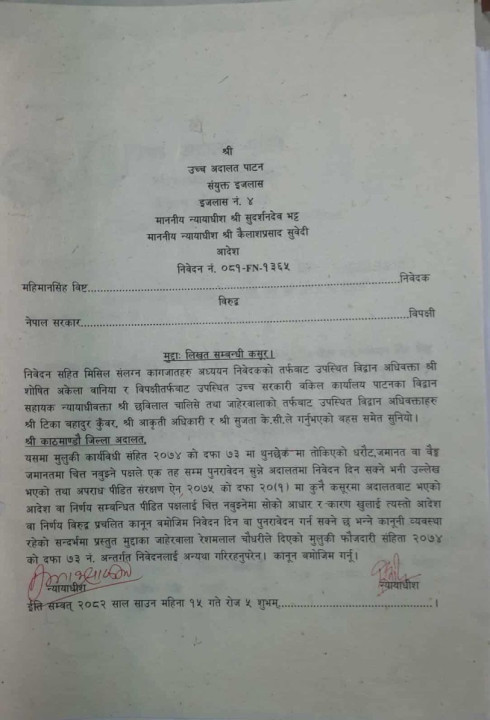 श्री
उच्च अदालत पाटन
संयुक्त इजलास
इजलास नं. ४
माननीय न्यायाधीश श्री सुदर्शनदेव भट्ट
माननीय न्यायाधीश श्री कैलाशप्रसाद सुवेदी
आदेश
निवेदन नं. ०८१-FN-१३६५
महिमानसिह विष्ट........................................................निवेदक
विरुद्ध
नेपाल सरकार........................................................विपक्षी
मुद्दाः लिखत सम्बन्धी कसुर।
निवेदन सहित मिसिल संलग्न कागजातहरु अध्ययन निवेदकको तर्फवाट उपस्थित विद्वान अधिवक्ता श्री
शोषित अकेला वानिया र विपक्षीतर्फवाट उपस्थित उच्च सरकारी वकिल कार्यालय पाटनका विद्वान
सहायक न्यायाधीवक्ता श्री छविलाल चालिसे तथा जाहेरवालाको तर्फवाट उपस्थित विद्वान अधिवक्ताहरु
श्री टिका बहादुर कुँवर, श्री आकृती अधिकारी र श्री सुजता के.सी.ले गर्नुभएको बहस समेत सुनियो।
श्री काठमाण्डौ जिल्ला अदालत,
यसमा मुलुकी कार्यविधी सहित २०७४ को दफा ७३ मा थुनछेक मा तोकिएको धरौट,जमानत वा बैङ्क
जमानतमा चित्त नवुझ्ने पक्षले एक तह सम्म पुनरावेदन सुन्ने अदालतमा निवेदन दिन सक्ने भनी उल्लेख
भएको तथा अपराध पीडित संरक्षण ऐन, २०७५ को दफा २०(१) मा कुनै कसुरमा अदालतवाट भएको
आदेश वा निर्णय सम्वन्धित पीडित पक्षलाई चित्त नवुझेनमा सोको आधार र कारण खुलाई त्यस्तो आदेश
वा निर्णय विरुद्ध प्रचलित कानून वमोजिम निवेदन दिन वा पुनरावेदन गर्न सक्ने छ भन्ने कानूनी व्यवस्था
रहेको सन्दर्भमा प्रस्तुत मुद्दाका जाहेरवाला रेशमलाल चौधरीले दिएको मुलुकी फौजदारी संहिता २०७४
को दफा ७३ नं. अन्तर्गत निवेदनलाई अन्यथा गरिरहनुपरेन। कानून वमोजिम गर्नू।
न्यायाधीश न्यायाधीश
ईति सम्वत् २०८२ साल साउन महिना १५ गते रोज ५ शुभम्........................................।